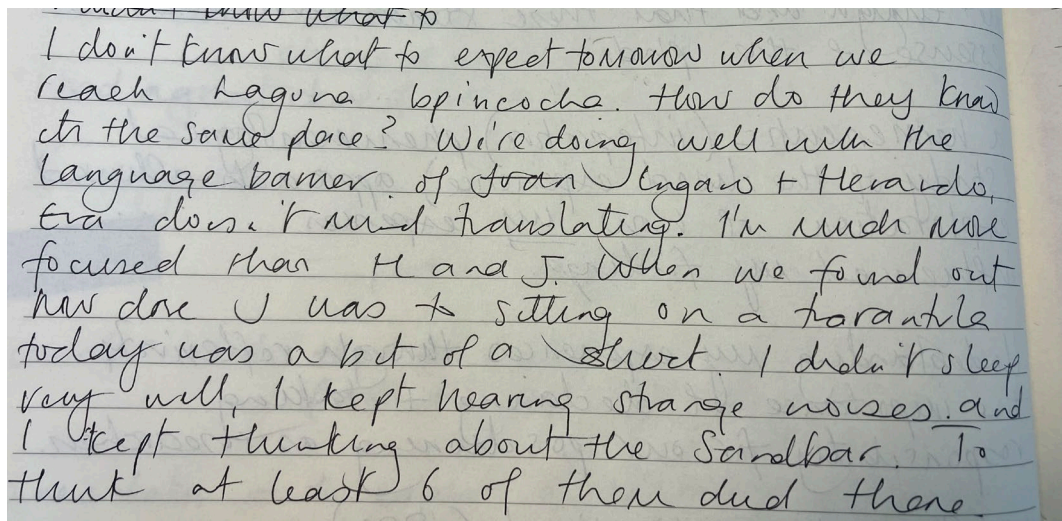 what to
I don't know what to expect tomorrow when we
reach Laguna Ipincocha. How do they know
it's the same place? We're doing well with the
language barrier of Juan Ingaro + Herardo,
Eva doesn't mind translating. I'm much more
focused than H and J. When we found out
how close J was to sitting on a tarantula
today was a bit of a shock. I didn't sleep
very well, I kept hearing strange noises. and
I kept thinking about the Sandbar. To
think at least 6 of them died there.